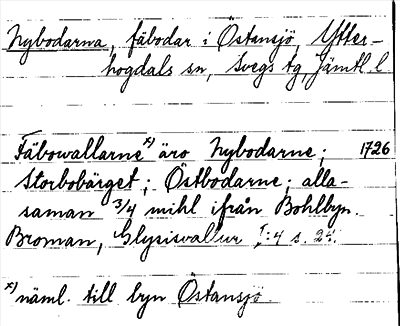 Nybodarna, fäbodar i Östansjö, Ytter-
hogdals sn, Svegs tg Jämtl. l.
Fäbowallarne x) äro Nybodarne; 1726
Storbobärget; Östbodarne; alla-
saman 3/4 mihl ifrån Bohlbyn.
Broman, Glysisvallur I:4 s. 24.
x) näml. till byn Östansjö.